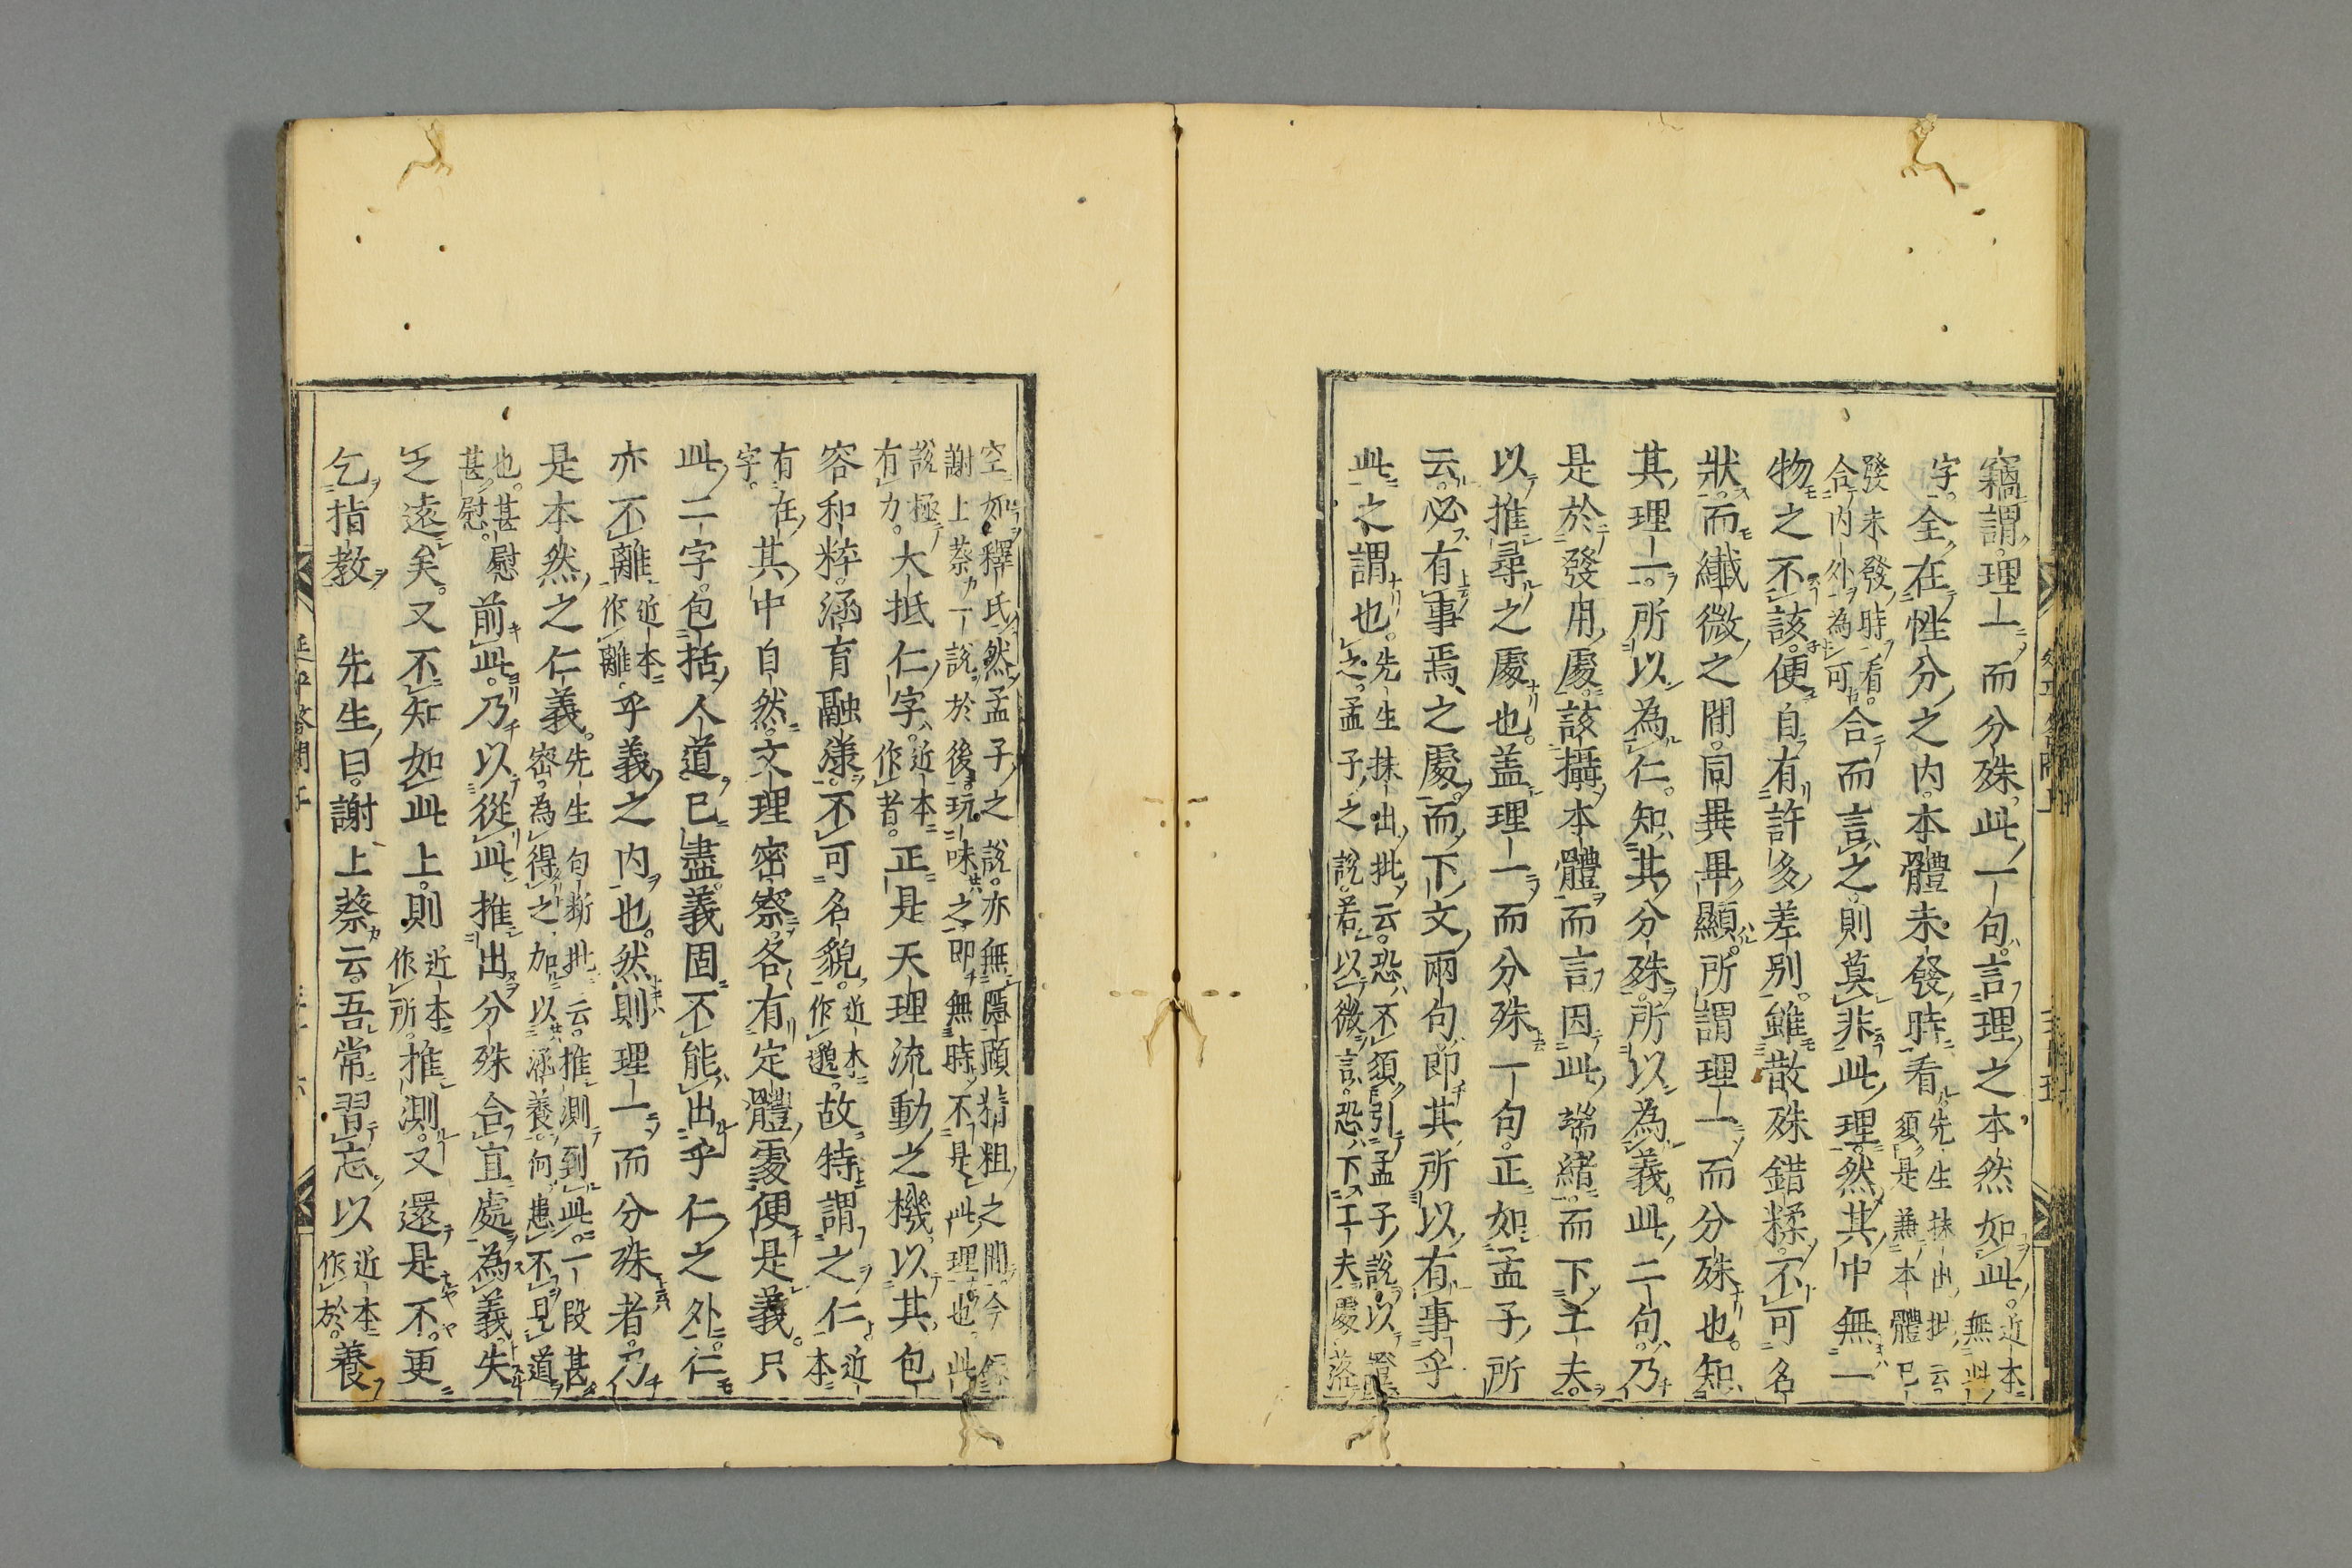 竊謂理一而分殊此一句言理之本然如此近本無此
字全在性分之內本體未發時看先生抹出批云須是兼本體已
發未發時看合內外為可合而言之則莫非此理然其中無一
物之不該便自有許多差別雖散殊錯糅不可名
狀而纖微之間同異畢顯所謂理一而分殊也知
其理一所以為仁知其分殊所以為義此二句乃
是於發用處該攝本體而言因此端緒而下工夫
以推尋之處也盖理一而分殊一句正如孟子所
云必有事焉之處而下文兩句即其所以有事乎
此之謂也先生抹出批云恐不須引孟子說以證之孟子之說若以微言恐下工夫處落
空如釋氏然孟子之說亦無隱顯精粗之間今錄謝上蔡一說於後玩味之即無時不是此理也此
說極有力大抵仁字近本作者正是天理流動之機以其包
容和粹涵育融漾不可名貌近本作邈故特謂之仁近本
有在字其中自然文理密察各有定體處便是義只
此二字包括人道已盡義固不能出乎仁之外仁
亦不離近本作離乎義之內也然則理一而分殊者乃
是本然之仁義先生句斷批云推測到此一段甚密為得之加以涵養何患不見道
也甚慰甚慰前此乃以從此推出分殊合宜處為義失
之遠矣又不知如此上則近本作所推測又還是不更
乞指教 先生曰謝上蔡云吾常習忘以近本作於養